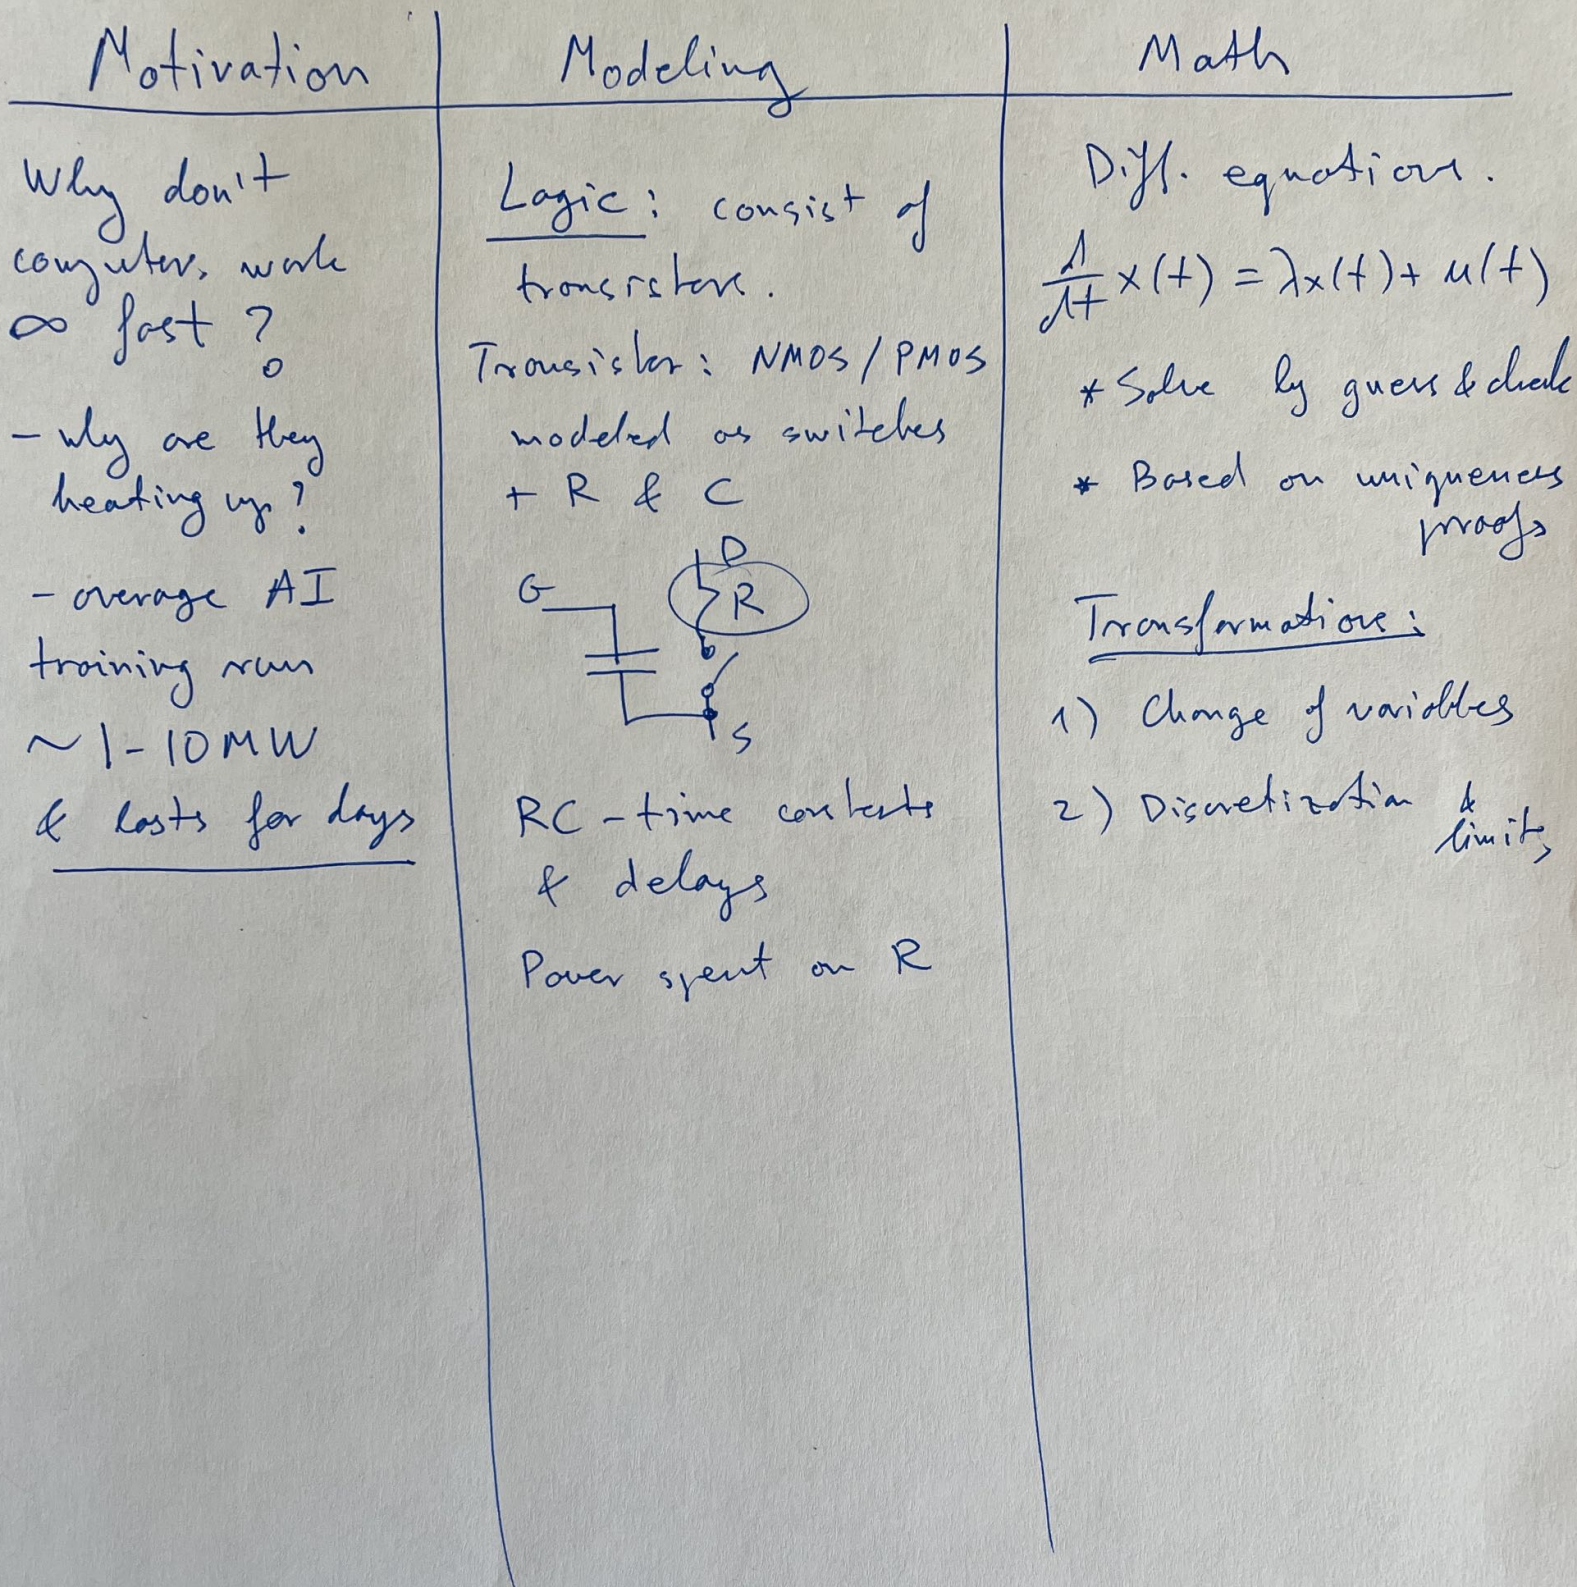 Motivation
Why don't
computers work
∞ fast ?
- why are they
heating up?
- average AI
training run
~ 1-10 MW
& lasts for days
Modeling
Logic: consist of
transistors.
Transistor: NMOS/PMOS
modeled as switches
+ R & C
D
G
R
S
RC-time constants
& delays
Power spent on R
Math
Diff. equations.
d/dt x(t) = λx(t) + u(t)
* Solve by guess & check
* Based on uniqueness
proofs
Transformations:
1) Change of variables
2) Discretization &
limits